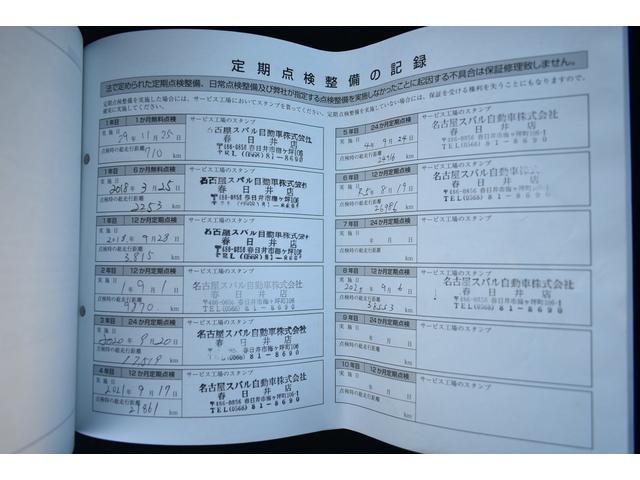 定期点検整備の記録
法で定められた定期点検整備、日常点検整備及び弊社が指定する点検整備を実施しなかったことに起因する不具合は保証修理致しません。
定期点検整備を実施した場合には、サービス工場においてスタンプを貰ってください。定期点検整備を実施していない場合には、保証を受ける権利を失うことにもなりますので、
確実に実施してください。
1年目 1か月無料点検
サービス工場のスタンプ
実施日
29年11月25日
点検時の総走行距離
710 km
名古屋スバル自動車株式会社
春日井店
〒486-0856 春日井市梅ヶ坪町106
TEL(0568)81-8690
1年目 6か月無料点検
サービス工場のスタンプ
実施日
2018年3月25日
点検時の総走行距離
2253 km
名古屋スバル自動車株式会社
春日井店
〒486-0856 春日井市梅ヶ坪町106
(0568)81-8690
1年目 12か月定期点検
サービス工場のスタンプ
実施日
2018年9月23日
点検時の総走行距離
3815 km
名古屋スバル自動車株式会社
春日井店
〒486-0856 春日井市梅ヶ坪町106
TEL(0568)81-8690
2年目 12か月定期点検
サービス工場のスタンプ
実施日
1年9月1日
点検時の総走行距離
9870 km
名古屋スバル自動車株式会社
春日井店
〒486-0856 春日井市梅ヶ坪町106
TEL(0568)81-8690
3年目 24か月定期点検
サービス工場のスタンプ
実施日
2020年9月20日
点検時の総走行距離
17519 km
名古屋スバル自動車株式会社
春日井店
春日井市梅ヶ坪町106
(0568)81-8690
4年目 12か月定期点検
サービス工場のスタンプ
実施日
2021年9月17日
点検時の総走行距離
21861 km
名古屋スバル自動車株式会社
春日井店
〒486-0856 春日井市梅ヶ坪町106
TEL(0568)81-8690
5年目 24か月定期点検
サービス工場のスタンプ
実施日
4年9月24日
点検時の総走行距離
km
名古屋スバル自動車株式会社
春日井店
〒486-0856 春日井市梅ヶ坪町106-1
TEL(0568)81-8690
6年目 12か月定期点検
サービス工場のスタンプ
実施日
R5年8月19日
点検時の総走行距離
26986 km
名古屋スバル自動車
春日井店
〒486-0856 春日井市梅ヶ坪町106-1
TEL(0568)81-8690
7年目 24か月定期点検
サービス工場のスタンプ
実施日
年 月 日
点検時の総走行距離
km
8年目 12か月定期点検
サービス工場のスタンプ
実施日
年9月6日
点検時の総走行距離
km
名古屋スバル自動車株式会社
春日井店
〒486-0856 春日井市梅ヶ坪町106-1
TEL(0568)81-8690
9年目 24か月定期点検
サービス工場のスタンプ
実施日
年 月 日
点検時の総走行距離
km
10年目 12か月定期点検
サービス工場のスタンプ
実施日
年 月 日
点検時の総走行距離
km